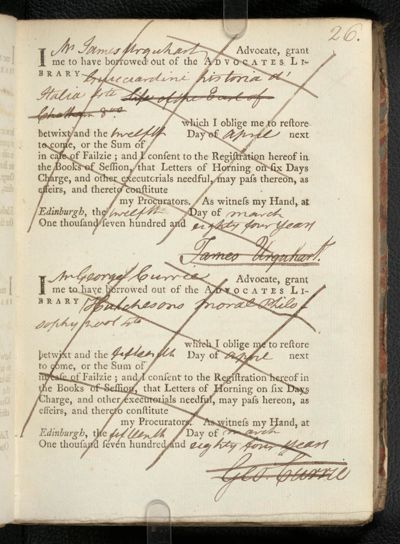 26.
I Mr James Urquhart Advocate, grant
me to have borrowed out of the ADVOCATES LI-
BRARY Guicciardini historia d'
Italia 4to Life of the Earl of
Chatham 8vo
which I oblige me to restore
betwixt and the twelfth Day of April next
to come, or the Sum of
in case of Failzie; and I consent to the Registration hereof in
the Books of Session, that Letters of Horning on six Days
Charge, and other executorials needful, may pass thereon, as
effeirs, and thereto constitute
my Procurators. As witness my Hand, at
Edinburgh, the twelfth Day of march
One thousand seven hundred and eighty four years
James Urquhart.
I Mr George Currie Advocate, grant
me to have borrowed out of the ADVOCATES LI-
BRARY Hutchesons moral Philo-
sophy 4to
which I oblige me to restore
betwixt and the fifteenth Day of April next
to come, or the Sum of
in case of Failzie; and I consent to the Registration hereof in
the Books of Session, that Letters of Horning on six Days
Charge, and other executorials needful, may pass thereon, as
effeirs, and thereto constitute
my Procurators. As witness my Hand, at
Edinburgh, the fifteenth Day of march
One thousand seven hundred and eighty four years
Geo. Currie